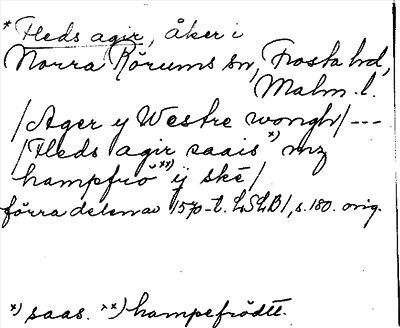 * Heds agir, åker i
Norra Rörums sn, Frosta hd,
Malm. l.
/Ager y Westre wongh/ ---
/Heds agir saais *) mz
hampfrö **) ÿ ske/
förra delen av 1570-t. LSLB1, s. 180. orig.
*) saas. **) hampefrödtt.